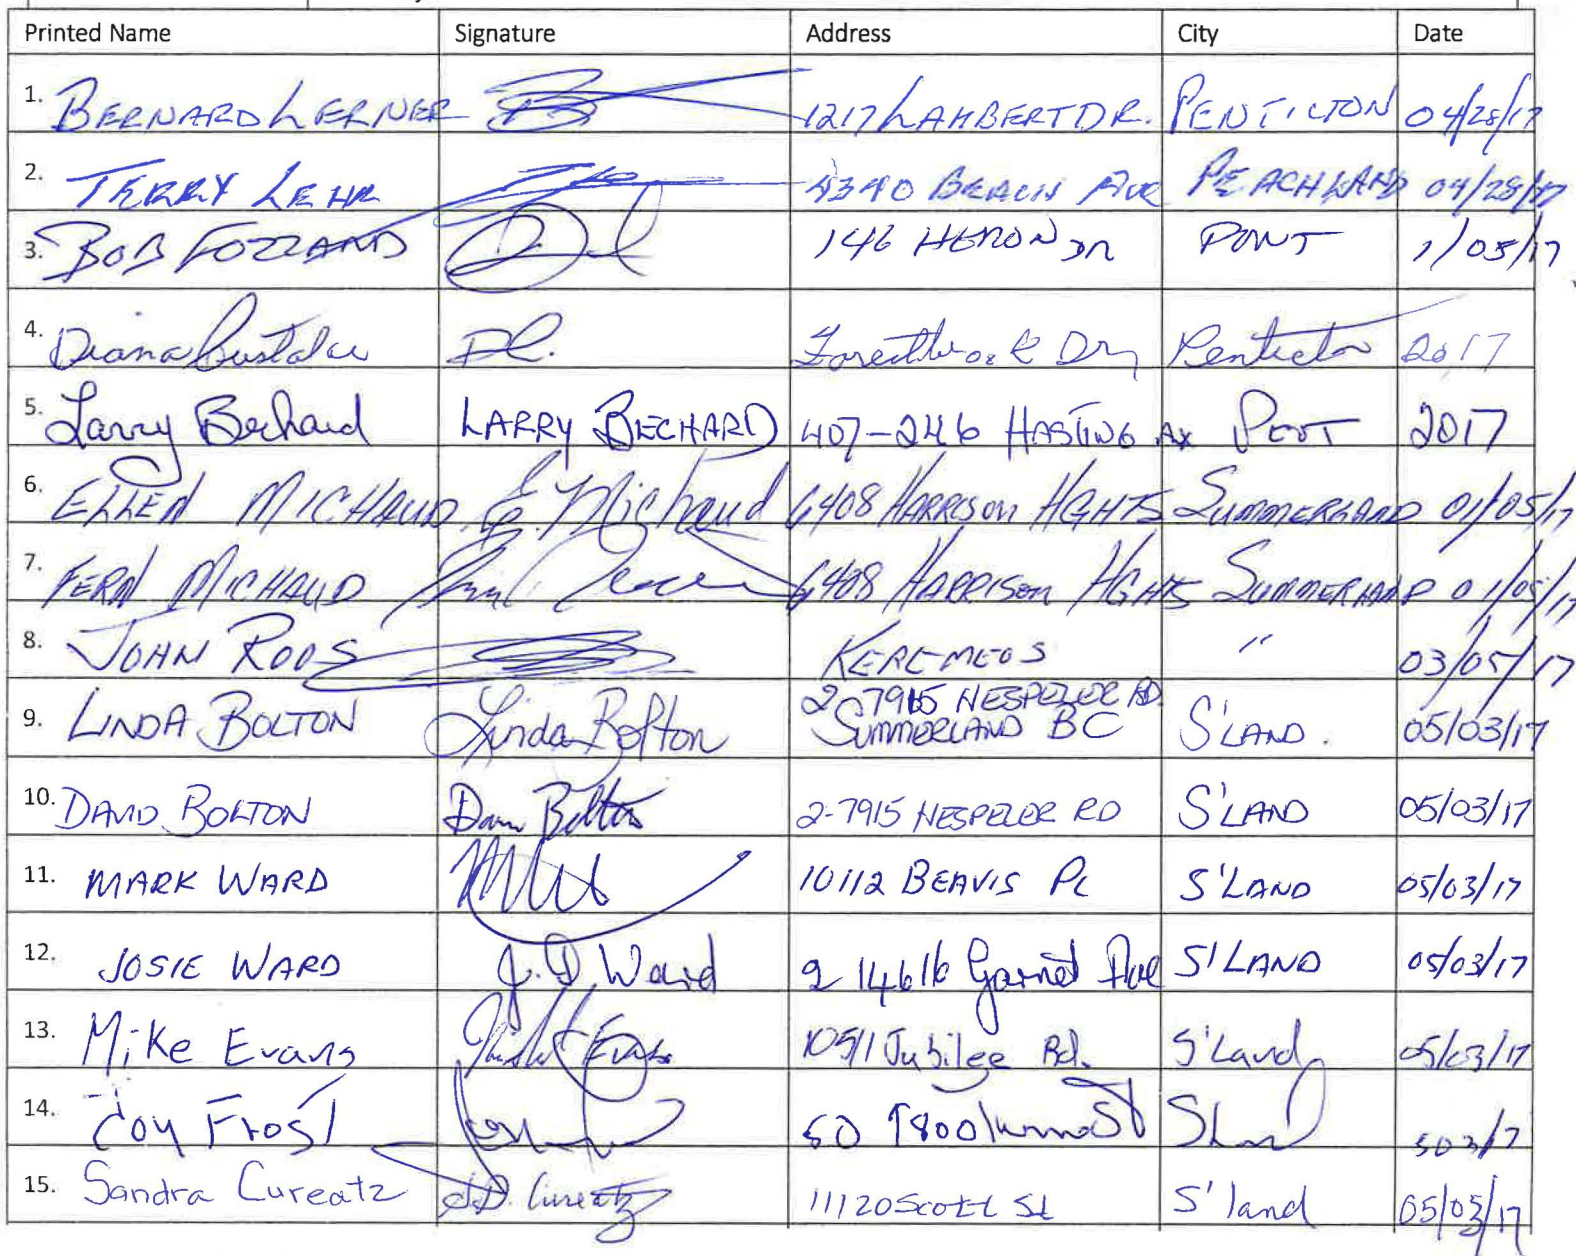 Printed Name Signature Address City Date
1. BERNARD LERNER 1217 LAMBERT DR. PENTICTON 04/28/17
2. TERRY LEHR 4340 BEACH AVE PEACHLAND 04/28/17
3. BOB FOZZARD 146 HERON DR PENT 1/05/17
4. Diana D.C. Penticton 2017
5. Larry Bechard LARRY BECHARD 407-246 HASTING AV PENT 2017
6. ELLEN MICHAUD E. Michaud 6408 HARRISON HGHTS SUMMERLAND 01/05/17
7. FERN MICHAUD 6408 HARRISON HGHTS SUMMERLAND 01/05/17
8. JOHN ROOS KEREMEOS " 03/05/17
9. LINDA BOLTON Linda Bolton 2-7915 NESPELER RD. SUMMERLAND BC S'LAND. 05/03/17
10. DAVID BOLTON Dav Bolton 2-7915 NESPELER RD S'LAND 05/03/17
11. MARK WARD 10112 BEAVIS PL S'LAND 05/03/17
12. JOSIE WARD J.D. Ward 2 14616 Garnet Ave S'LAND 05/03/17
13. Mike Evans Evans 10511 Jubilee Rd. S'Land 05/03/17
14. Joy Frost SLand
15. Sandra Cureatz S.D. Cureatz 11120 Scott St S'land 05/03/17